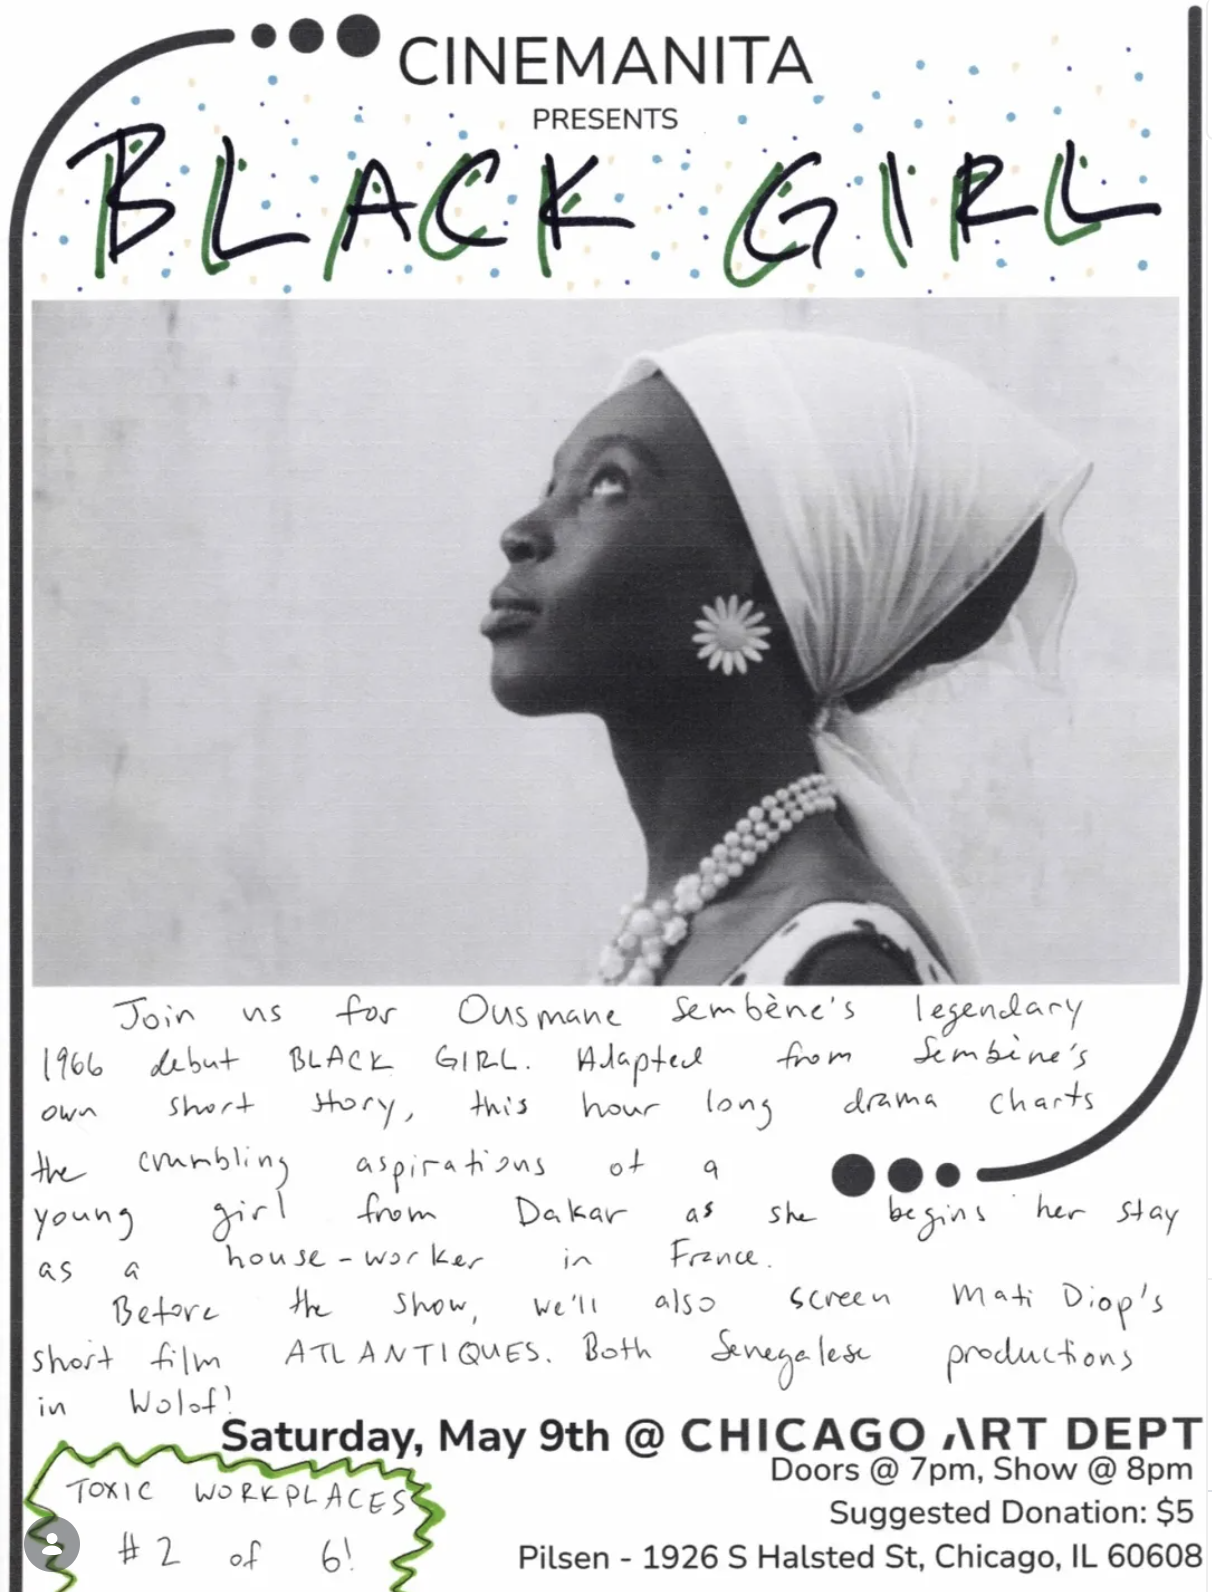 CINEMANITA
PRESENTS
BLACK GIRL
Join us for Ousmane Sembène's legendary
1966 debut BLACK GIRL. Adapted from Sembène's
own short story, this hour long drama charts
the crumbling aspirations of a
young girl from Dakar as she begins her stay
as a house-worker in France.
Before the show, we'll also screen Mati Diop's
short film ATLANTIQUES. Both Senegalese productions
in Wolof!
Saturday, May 9th @ CHICAGO ART DEPT
Doors @ 7pm, Show @ 8pm
Suggested Donation: $5
Pilsen - 1926 S Halsted St, Chicago, IL 60608
TOXIC WORKPLACES
#2 of 6!